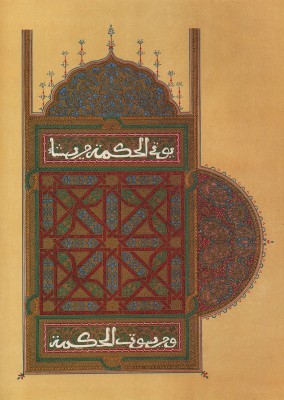 يوتي الحكمة من يشاء
ومن يوت الحكمة